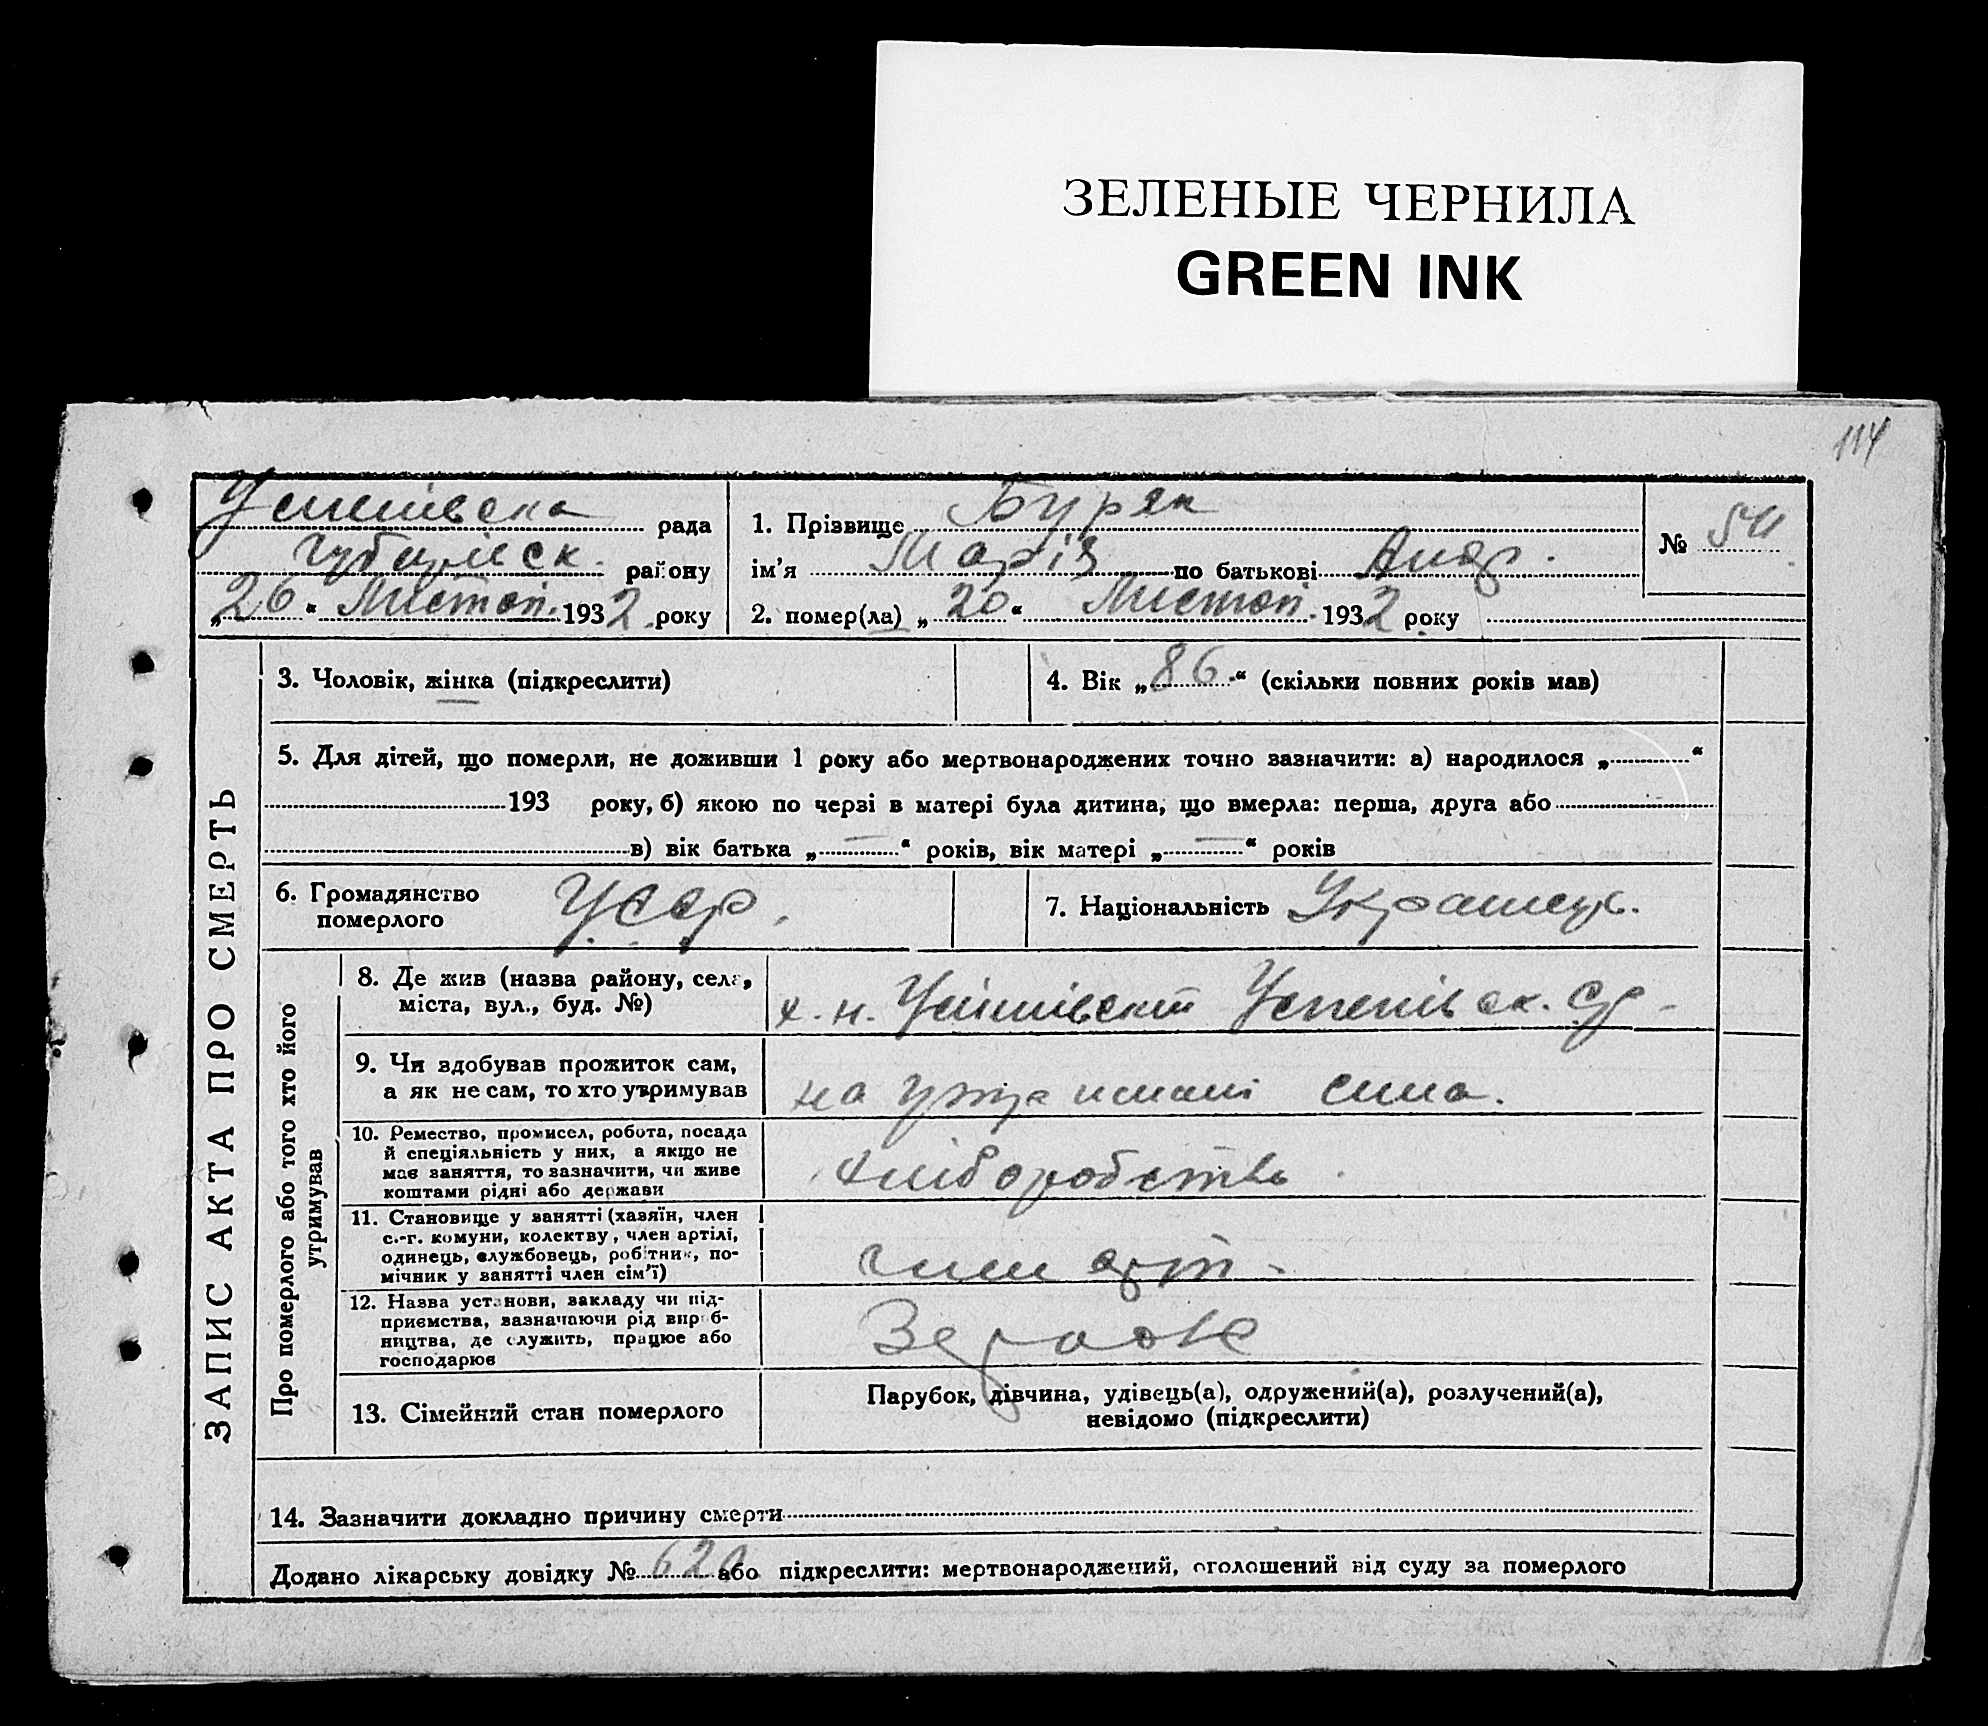 ЗЕЛЕНЫЕ ЧЕРНИЛА
GREEN INK
114
рада
району
„26“ Листоп. 1932 року
1. Прізвище Буряк
ім’я Марія по батькові Андр.
2. помер(ла) „20“ Листоп. 1932 року
№ 54
ЗАПИС АКТА ПРО СМЕРТЬ
3. Чоловік, жінка (підкреслити)
4. Вік „86“ (скільки повних років мав)
5. Для дітей, що померли, не доживши 1 року або мертвонароджених точно зазначити: а) народилося „ “
193 року, б) якою по черзі в матері була дитина, що вмерла: перша, друга або
в) вік батька „—“ років, вік матері „—“ років
6. Громадянство
померлого
УССР.
7. Національність
Про померлого або того хто його
утримував
8. Де жив (назва району, села,
міста, вул., буд. №)
9. Чи здобував прожиток сам,
а як не сам, то хто утримував
на утриманні сина.
10. Ремество, промисел, робота, посада
й спеціяльність у них, а якщо не
має заняття, то зазначити, чи живе
коштами рідні або держави
хліборобство
11. Становище у занятті (хазяїн, член
с.-г. комуни, колектву, член артілі,
одинець, службовець, робітник, по-
мічник у занятті член сім’ї)
член арт.
12. Назва установи, закладу чи під-
приємства, зазначаючи рід вироб-
ництва, де служить, працює або
господарює
13. Сімейний стан померлого
Парубок, дівчина, удівець(а), одружений(а), розлучений(а),
невідомо (підкреслити)
14. Зазначити докладно причину смерти
Додано лікарську довідку № 620 або підкреслити: мертвонароджений, оголошений від суду за померлого